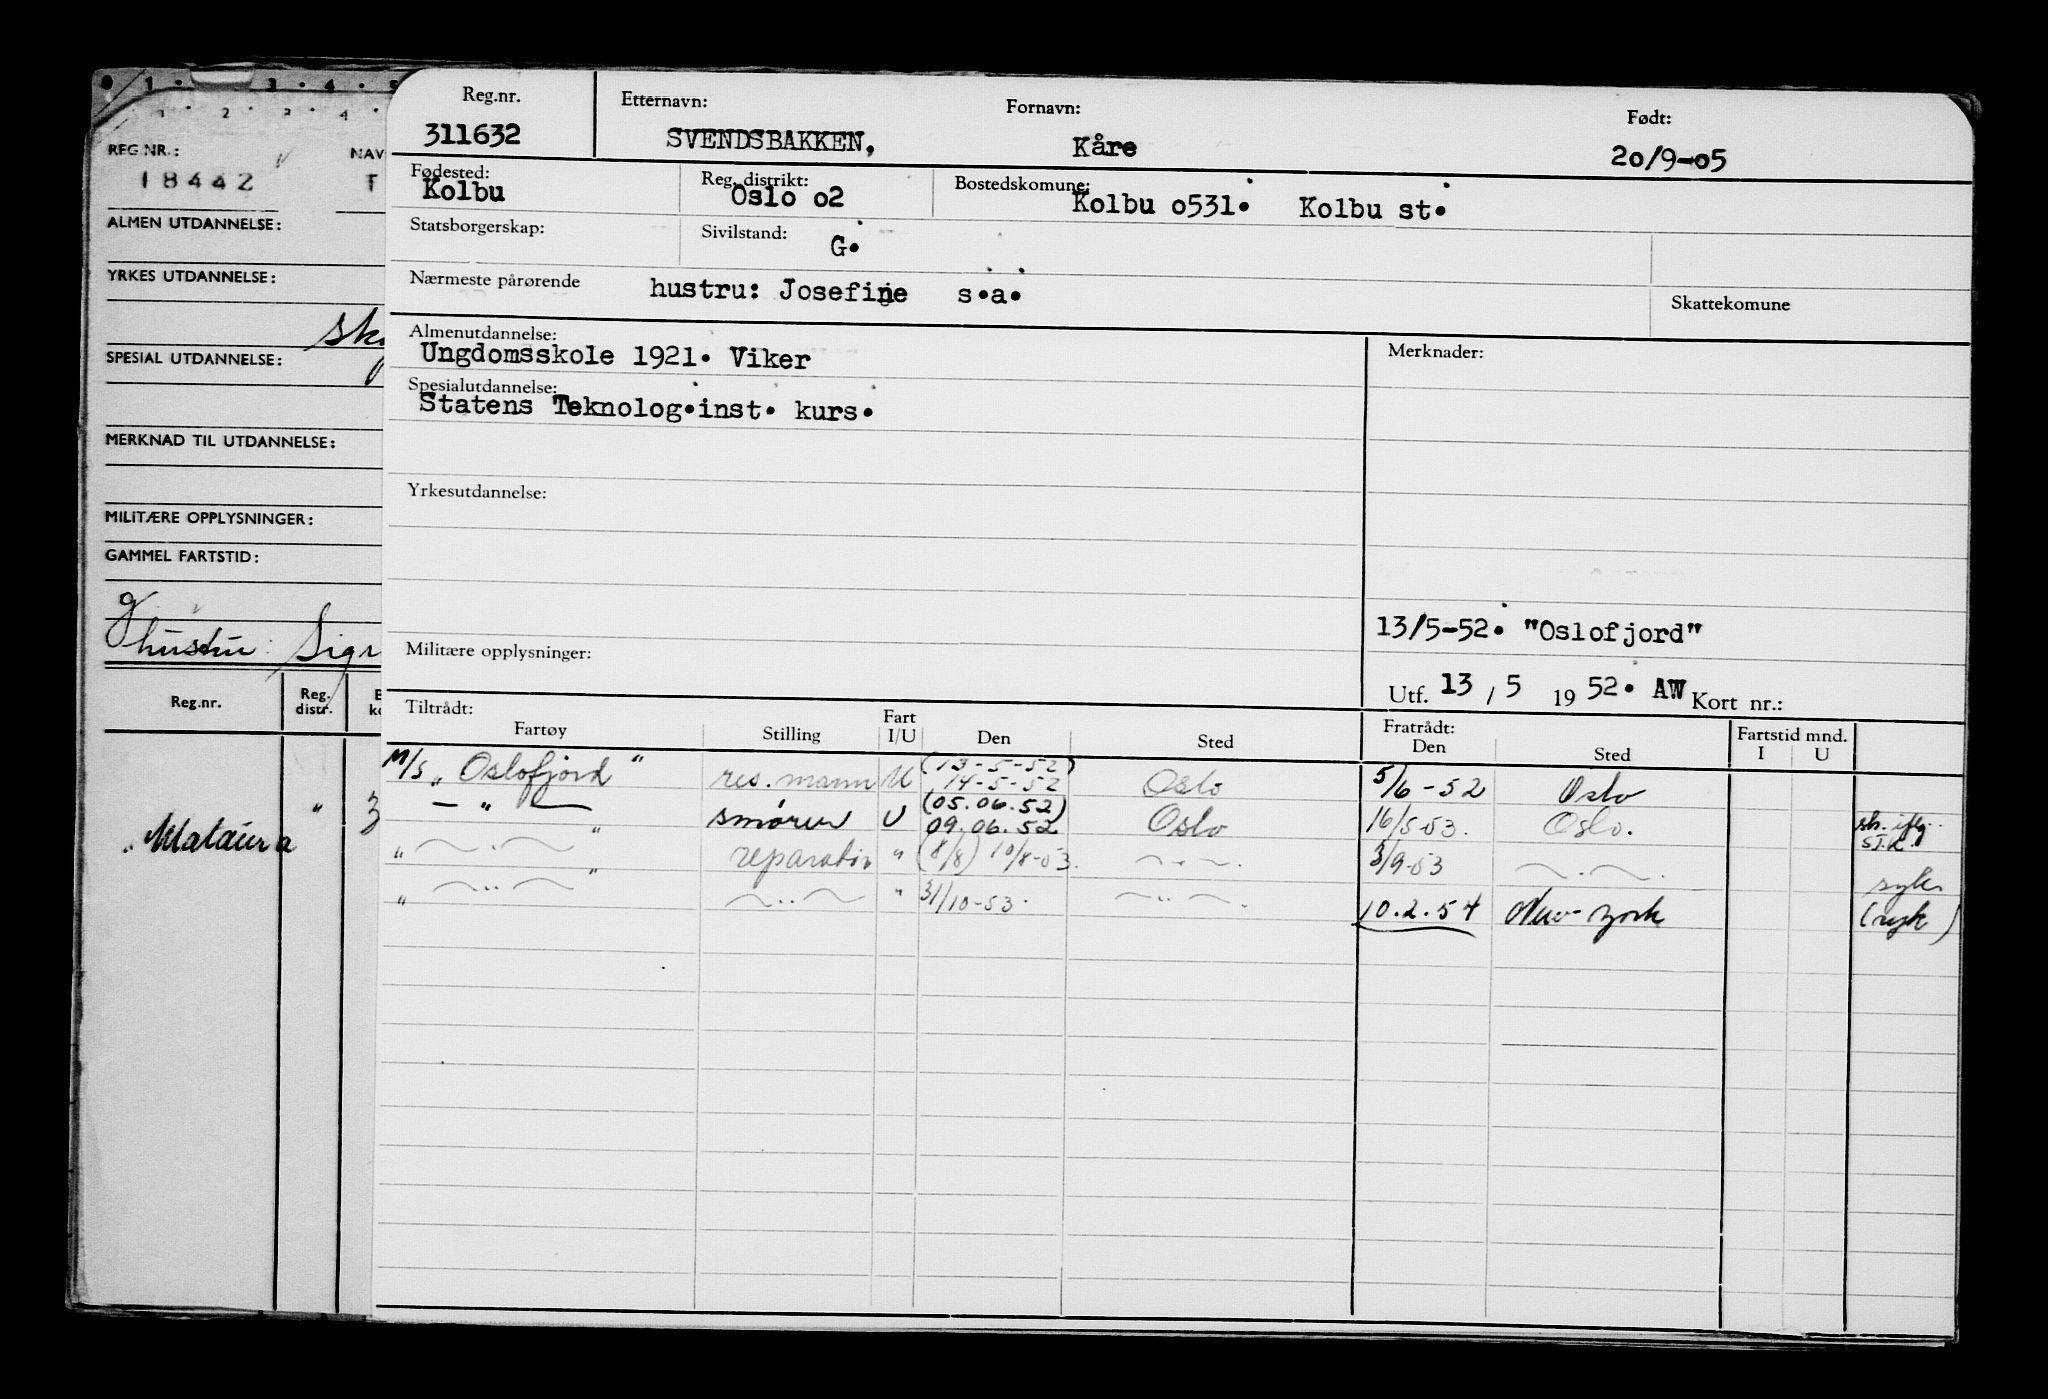 1 · 3 · 4 · 5
1 · 2 · 3 · 4 ·
REG NR.: NAV
18442 T
ALMEN UTDANNELSE:
YRKES UTDANNELSE:
SPESIAL UTDANNELSE:
MERKNAD TIL UTDANNELSE:
MILITÆRE OPPLYSNINGER:
GAMMEL FARTSTID:
g
hustru: Sigr
Reg.nr. Reg. distr.
"Mataura " 3
Reg.nr. Etternavn: Fornavn: Født:
311632 SVENDSBAKKEN, Kåre 20/9-05
Fødested: Reg. distrikt: Bostedskomune:
Kolbu Oslo 02 Kolbu 0531. Kolbu st.
Statsborgerskap: Sivilstand: G.
Nærmeste pårørende hustru: Josefine s.a. Skattekomune
Almenutdannelse: Merknader:
Ungdomsskole 1921. Viker
Spesialutdannelse:
Statens Teknolog.inst. kurs.
Yrkesutdannelse:
13/5-52. "Oslofjord"
Militære opplysninger:
Utf. 13 / 5 1952. AW Kort nr.:
Tiltrådt: Fratrådt: Fartstid mnd.
Fartøy Stilling Fart I/U Den Sted Den Sted I U
M/S "Oslofjord" res. mann U (13-5-52) 14-5-52 Oslo 5/6-52 Oslo
— " — smører U (05.06.52) 09.06.52 Oslo 16/5-53. Oslo.
" — . — " reparatør " (8/8) 10/8-53. — " —. 3/9-53 — . —.
" — .. — " — .. — " 31/10-53. — " —. 10.2.54 New-York (syk)